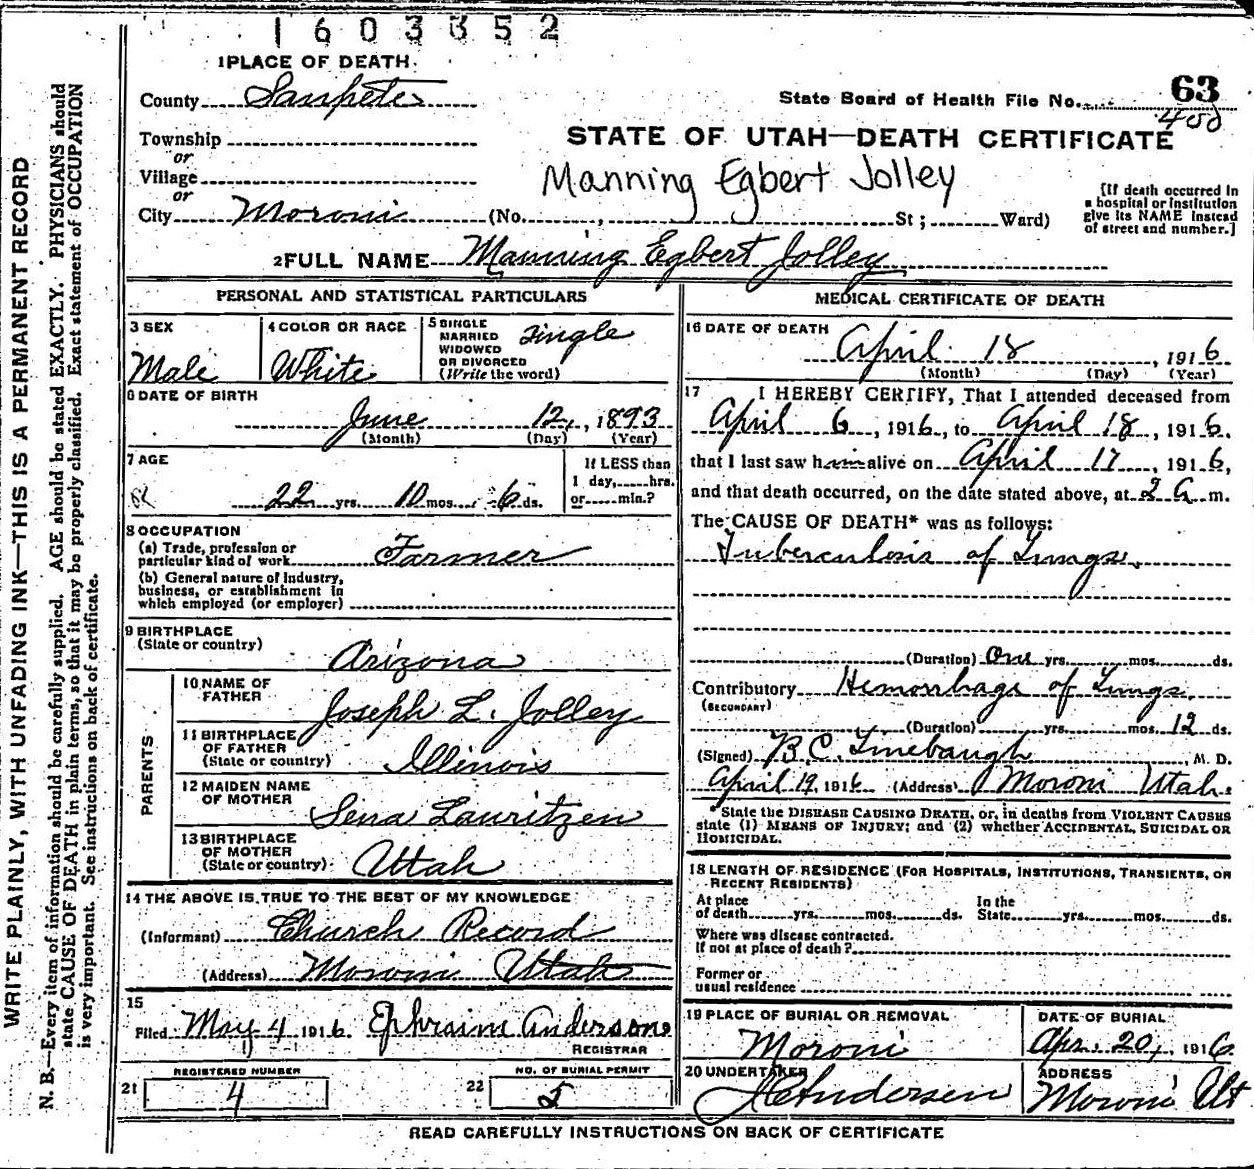 1603352
1 PLACE OF DEATH
County Sanpete
State Board of Health File No. 63
400
Township
or
Village
or
City Moroni (No. , St; Ward)
STATE OF UTAH—DEATH CERTIFICATE
Manning Egbert Jolley
[If death occurred in
a hospital or institution
give its NAME instead
of street and number.]
2 FULL NAME Manning Egbert Jolley
PERSONAL AND STATISTICAL PARTICULARS
3 SEX
Male
4 COLOR OR RACE
White
5 SINGLE
MARRIED
WIDOWED
OR DIVORCED
(Write the word)
Single
6 DATE OF BIRTH
June 12, 1893
(Month) (Day) (Year)
7 AGE
22 yrs. 10 mos. 6 ds.
If LESS than
1 day, hrs.
or min.?
8 OCCUPATION
(a) Trade, profession or
particular kind of work Farmer
(b) General nature of Industry,
business, or establishment in
which employed (or employer)
9 BIRTHPLACE
(State or country)
Arizona
PARENTS
10 NAME OF
FATHER
Joseph L. Jolley
11 BIRTHPLACE
OF FATHER
(State or country)
Illinois
12 MAIDEN NAME
OF MOTHER
Sena Lauritzen
13 BIRTHPLACE
OF MOTHER
(State or country)
Utah
14 THE ABOVE IS TRUE TO THE BEST OF MY KNOWLEDGE
(Informant) Church Record
(Address) Moroni Utah
15
Filed May 4 1916 Ephraim Anderson
REGISTRAR
21
REGISTERED NUMBER
4
22
NO. OF BURIAL PERMIT
5
MEDICAL CERTIFICATE OF DEATH
16 DATE OF DEATH
April 18, 1916
(Month) (Day) (Year)
17 I HEREBY CERTIFY, That I attended deceased from
April 6, 1916, to April 18, 1916.
that I last saw him alive on April 17, 1916,
and that death occurred, on the date stated above, at 2 a m.
The CAUSE OF DEATH* was as follows:
Tuberculosis of Lungs.
(Duration) One yrs. mos. ds.
Contributory Hemorrhage of Lungs.
(SECONDARY)
(Duration) yrs. mos. 12 ds.
(Signed) B. C. Linebaugh, M. D.
April 19, 1916 (Address) Moroni Utah.
*State the DISEASE CAUSING DEATH, or, in deaths from VIOLENT CAUSES
state (1) MEANS OF INJURY; and (2) whether ACCIDENTAL, SUICIDAL OR
HOMICIDAL.
18 LENGTH OF RESIDENCE (FOR HOSPITALS, INSTITUTIONS, TRANSIENTS, OR
RECENT RESIDENTS)
At place
of death yrs. mos. ds.
In the
State yrs. mos. ds.
Where was disease contracted.
If not at place of death?
Former or
usual residence
19 PLACE OF BURIAL OR REMOVAL
Moroni
DATE OF BURIAL
Apr. 20, 1916
20 UNDERTAKER
Andersen
ADDRESS
Moroni Ut
READ CAREFULLY INSTRUCTIONS ON BACK OF CERTIFICATE
WRITE PLAINLY, WITH UNFADING INK—THIS IS A PERMANENT RECORD
N. B.—Every item of information should be carefully supplied. AGE should be stated EXACTLY. PHYSICIANS should
state CAUSE OF DEATH in plain terms, so that it may be properly classified. Exact statement of OCCUPATION
is very important. See instructions on back of certificate.